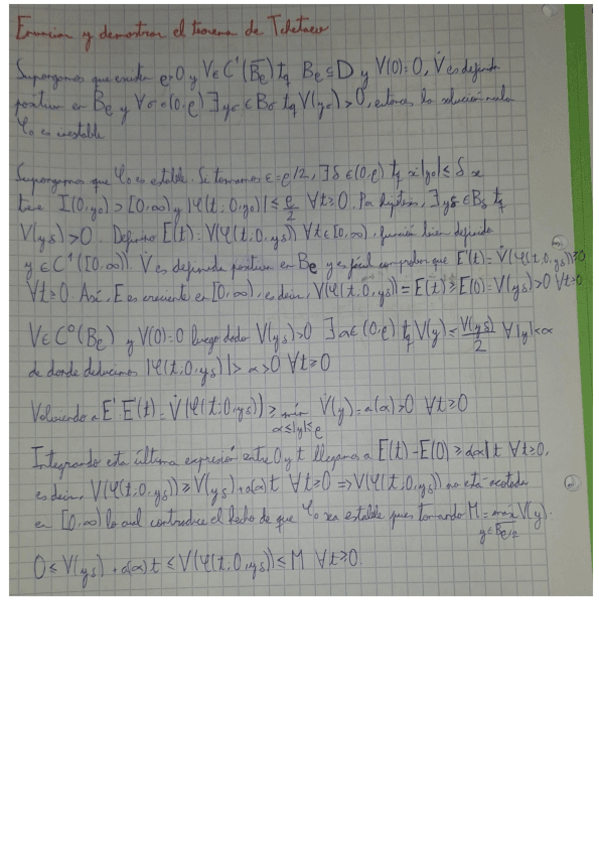 Enunciar y demostrar el teorema de Tchetaev
Supongamos que existen ρ>0 y V∈C¹(B̅ρ) tq B̅ρ⊆D y V(0)=0, V̇ es definida
positiva en Bρ y ∀σ∈(0,ρ) ∃yσ∈Bσ tq V(yσ)>0, entonces la solución nula
φ₀ es inestable
Supongamos que φ₀ es estable. Si tomamos ε=ρ/2, ∃δ∈(0,ρ) tq si |y₀|≤δ se
tiene I(0,y₀)⊃[0,∞) y |φ(t,0,y₀)|≤ρ/2 ∀t≥0. Por hipótesis, ∃yδ∈Bδ tq
V(yδ)>0. Definimos E(t)=V(φ(t,0,yδ)) ∀t∈[0,∞), función bien definida
y ∈C¹([0,∞)). V̇ es definida positiva en Bρ y es fácil comprobar que E'(t)=V̇(φ(t,0,yδ))≥0
∀t≥0. Así, E es creciente en [0,∞), es decir, V(φ(t,0,yδ))=E(t)≥E(0)=V(yδ)>0 ∀t≥0
V∈C⁰(Bρ) y V(0)=0 luego dado V(yδ)>0 ∃α∈(0,ρ) tq V(y)<V(yδ)/2 ∀|y|<α
de donde deducimos |φ(t,0,yδ)|>α>0 ∀t≥0
Volviendo a E' E'(t)=V̇(φ(t;0,yδ))≥ min α≤|y|≤ρ V̇(y)=a(α)>0 ∀t≥0
Integrando esta última expresión entre 0 y t llegamos a E(t)-E(0)≥a(α)t ∀t≥0,
es decir, V(φ(t,0,yδ))≥V(yδ)+a(α)t ∀t≥0 ⇒V(φ(t,0,yδ)) no está acotada
en [0,∞) lo cual contradice el hecho de que φ₀ sea estable pues tomando M=max y∈B̅ρ/2 V(y).
0≤V(yδ)+a(α)t≤V(φ(t,0,yδ))≤M ∀t≥0